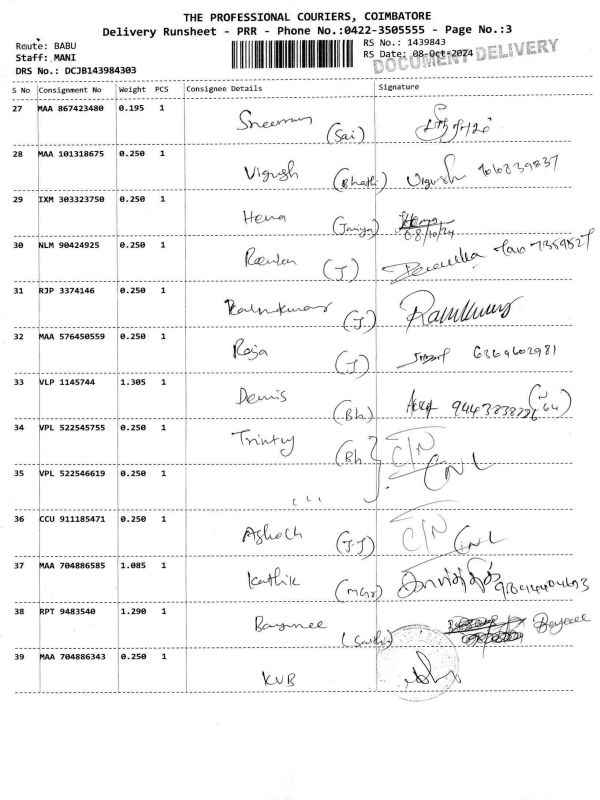 THE PROFESSIONAL COURIERS, COIMBATORE
Delivery Runsheet - PRR - Phone No.:0422-3505555 - Page No.:3
Route: BABU
Staff: MANI
DRS No.: DCJB143984303
RS No.: 1439843
RS Date: 08-Oct-2024
DOCUMENT DELIVERY
S No Consignment No Weight PCS Consignee Details Signature
27 MAA 867423480 0.195 1 (Sai)
28 MAA 101318675 0.250 1 Vignesh (Bhathi) Vignesh
29 IXM 303323750 0.250 1 Hema Hema 08/10/24
30 NLM 90424925 0.250 1 (J)
31 RJP 3374146 0.250 1 (J) Ramkumar
32 MAA 576450559 0.250 1 Raja (J) 6369602981
33 VLP 1145744 1.305 1 Dennis (Bh)
34 VPL 522545755 0.250 1 Trinity (Bh) C/N CNL
35 VPL 522546619 0.250 1
36 CCU 911185471 0.250 1 Ashock (J.J) C/N CNL
37 MAA 704886585 1.085 1 Kathik (MGr) கார்த்திக்
38 RPT 9483540 1.290 1
39 MAA 704886343 0.250 1 KVB